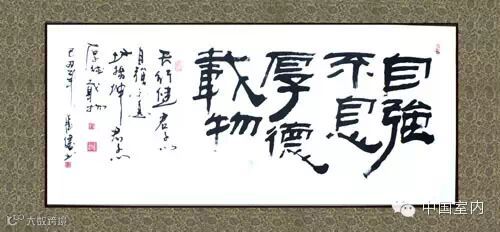 自強
不息
厚德
載物
天行健君子以
自強不息
地勢坤君子以
厚德載物
己丑年
中国室内
大数跨境